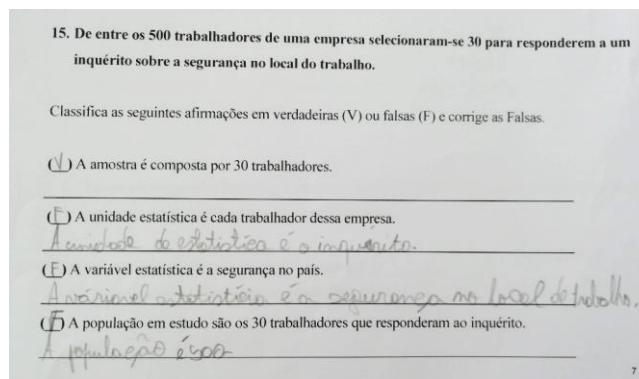 15. De entre os 500 trabalhadores de uma empresa selecionaram-se 30 para responderem a um
inquérito sobre a segurança no local do trabalho.
Classifica as seguintes afirmações em verdadeiras (V) ou falsas (F) e corrige as Falsas.
(V) A amostra é composta por 30 trabalhadores.
(F) A unidade estatística é cada trabalhador dessa empresa.
A unidade de estatistica é o inquérito.
(F) A variável estatística é a segurança no país.
A várionel estatistícia é a segurança no local de trabalho.
(F) A população em estudo são os 30 trabalhadores que responderam ao inquérito.
A população é 500
7